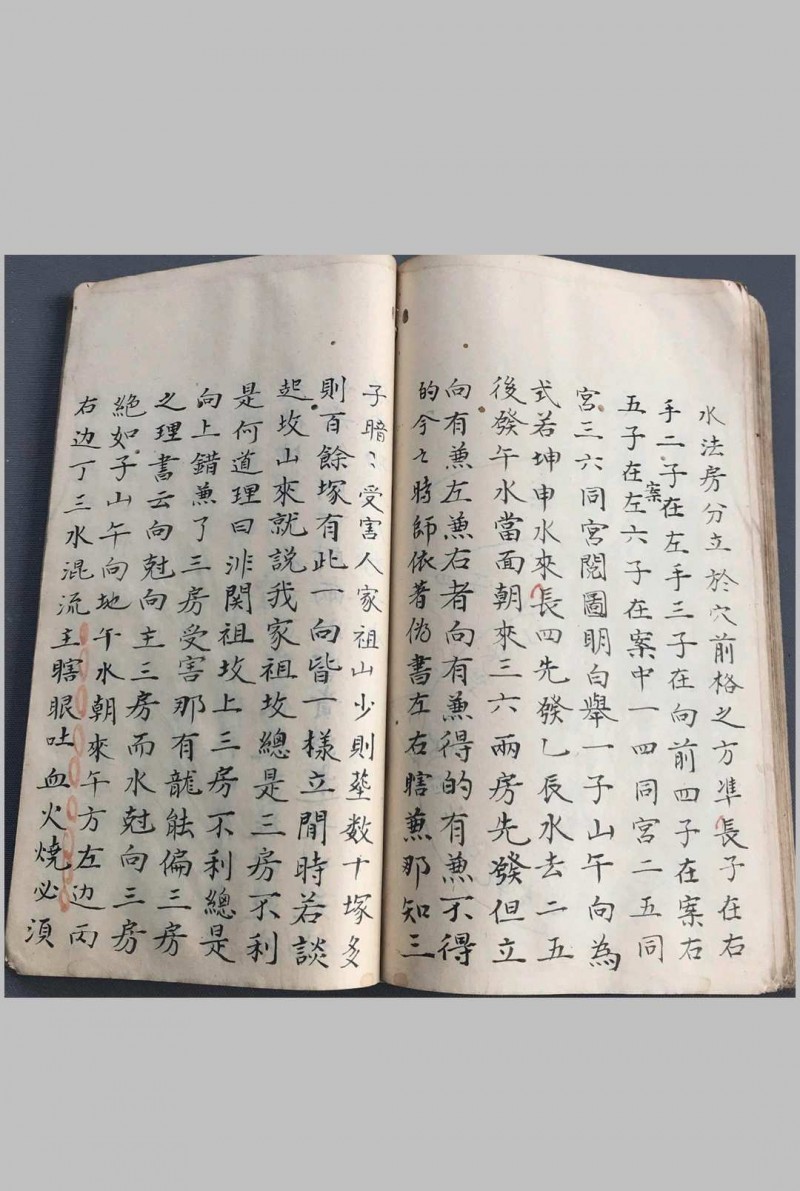 水法房分立於穴前格之方準長子在右
手二子在左手三子在向前四子在案右
五子在左案六子在案中一四同宮二五同
宮三六同宮閱圖明白舉一子山午向為
式若坤申水來長四先發乙辰水去二五
後發午水當面朝來三六兩房先發但立
向有兼左兼右者向有兼得的有兼不得
的今〻時師依著偽書左右瞎兼那知三
子暗〻受害人家祖山少則塟数十塚多
則百餘塚有此一向皆一樣立閒時若談
起坟山來就説我家祖坟總是三房不利
是何道理曰非関祖坟上三房不利總是
向上錯兼了三房受害那有龍能偏三房
之理書云向尅向主三房而水尅向三房
絶如子山午向地午水朝來午方左边丙
右边丁三水混流主瞎眼吐血火燒必須